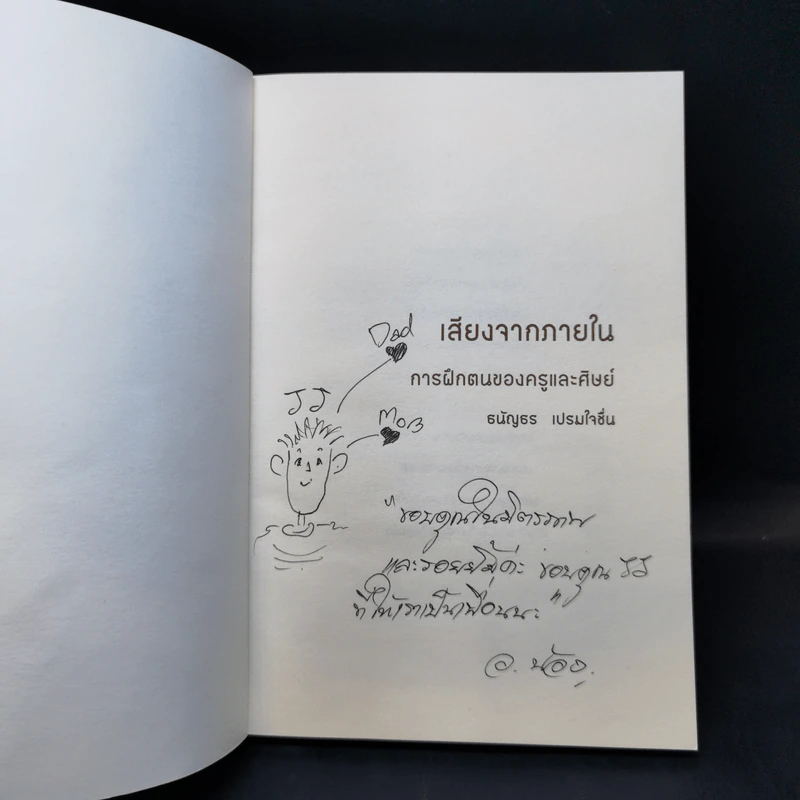 Dad
เสียงจากภายใน
การฝึกตนของครูและศิษย์
ธนัญธร เปรมใจชื่น
JJ
Mom
"ขอบคุณในมิตรภาพ
และรอยยิ้มค่ะ ขอบคุณ JJ
ที่ให้เราเป็นเพื่อนนะ"
อ. น้อง.